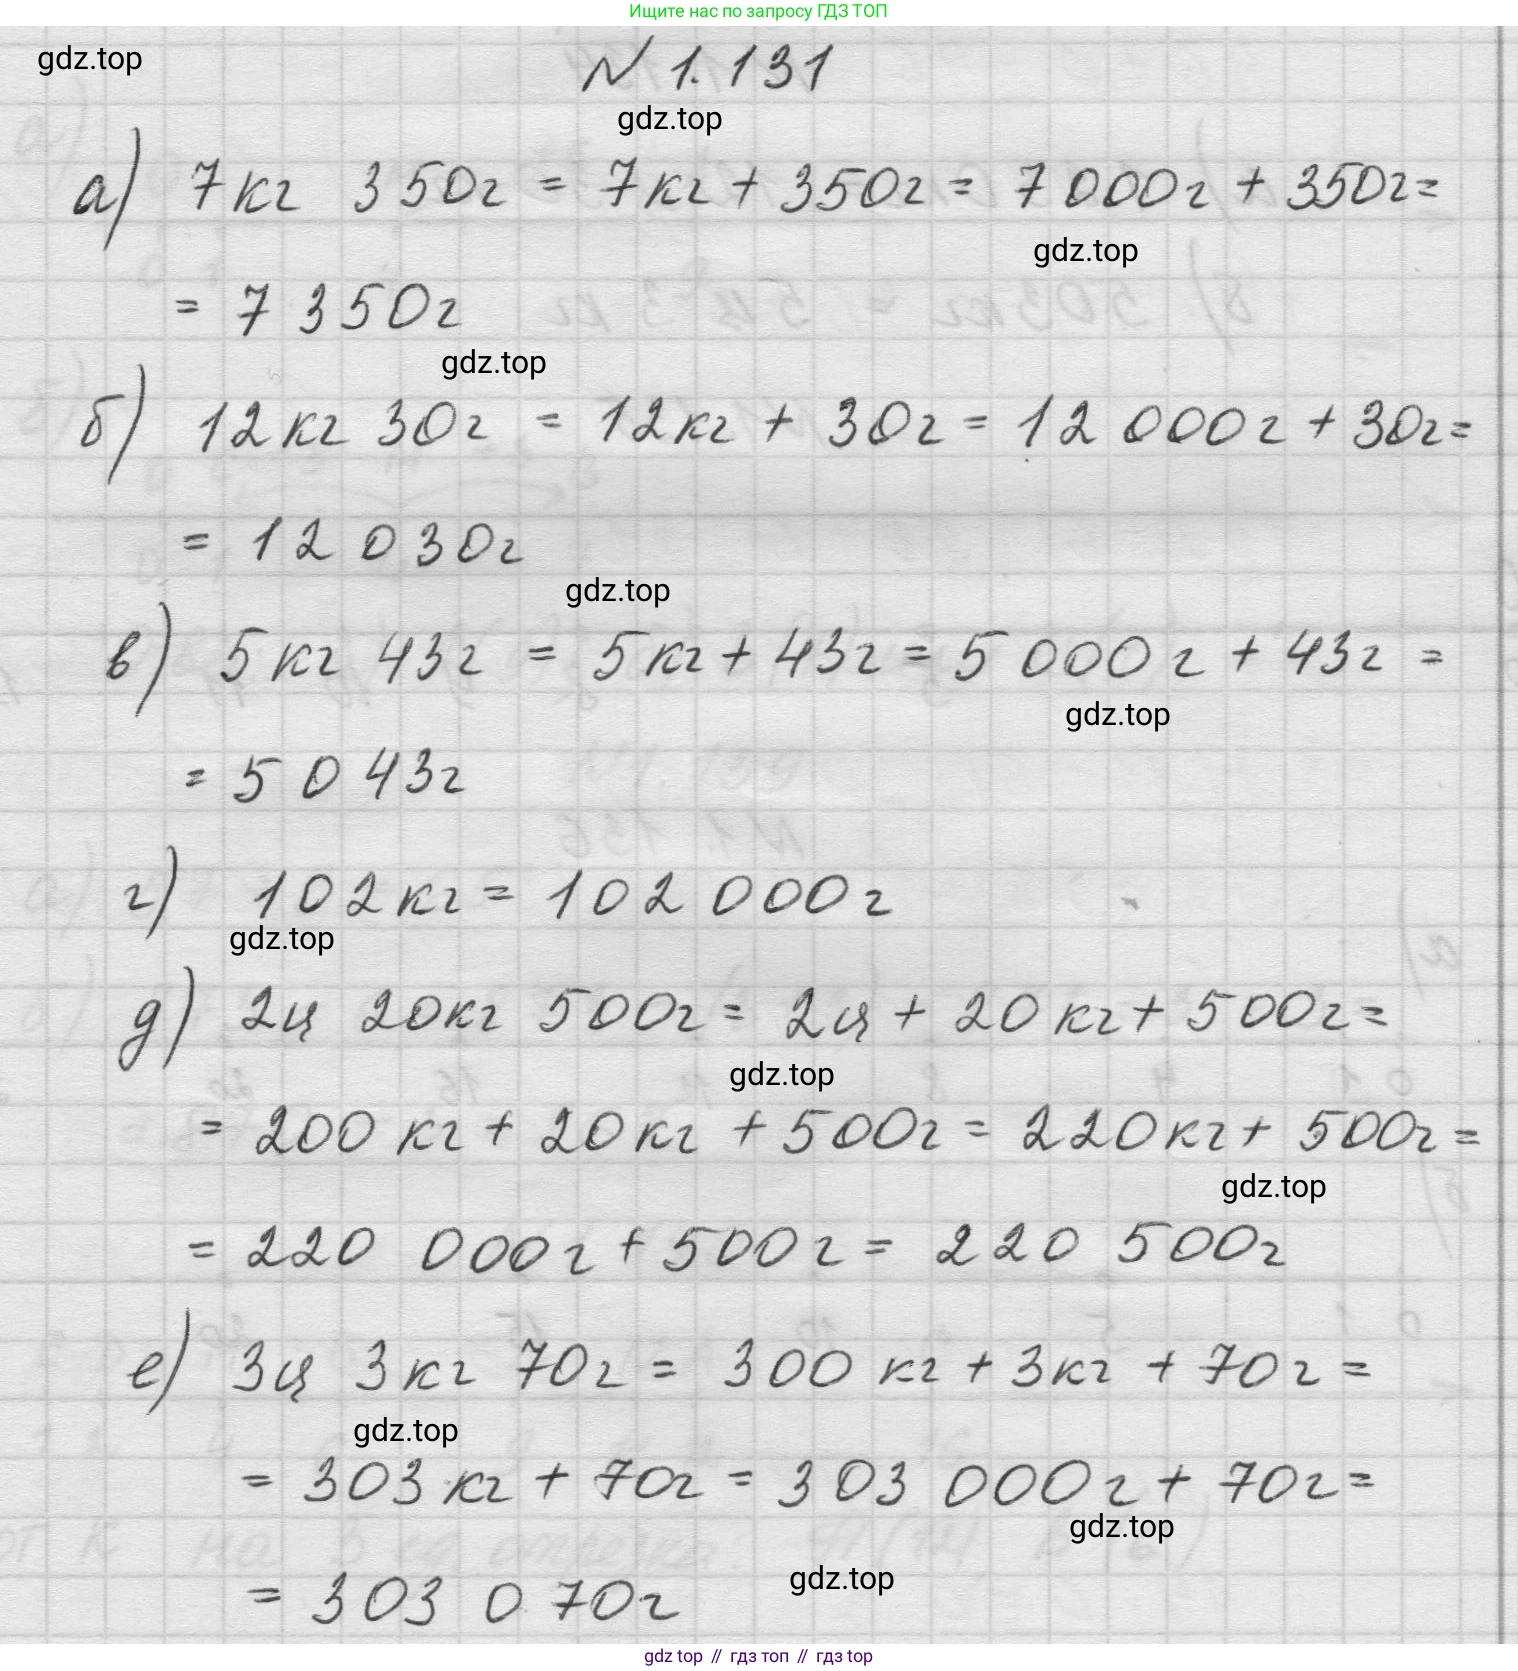 Ищите нас по запросу ГДЗ ТОП
gdz.top
N 1.131
gdz.top
а) 7кг 350г = 7кг + 350г = 7 000г + 350г =
gdz.top
= 7 350г
gdz.top
б) 12кг 30г = 12кг + 30г = 12 000г + 30г =
= 12 030г
gdz.top
в) 5кг 43г = 5кг + 43г = 5 000г + 43г =
gdz.top
= 5 043г
г) 102кг = 102 000г
gdz.top
д) 2ц 20кг 500г = 2ц + 20кг + 500г =
gdz.top
= 200 кг + 20кг + 500г = 220кг + 500г =
gdz.top
= 220 000г + 500г = 220 500г
е) 3ц 3кг 70г = 300 кг + 3кг + 70г =
gdz.top
= 303кг + 70г = 303 000г + 70г =
gdz.top
gdz.top
= 303 070г
gdz top // гдз топ // гдз top